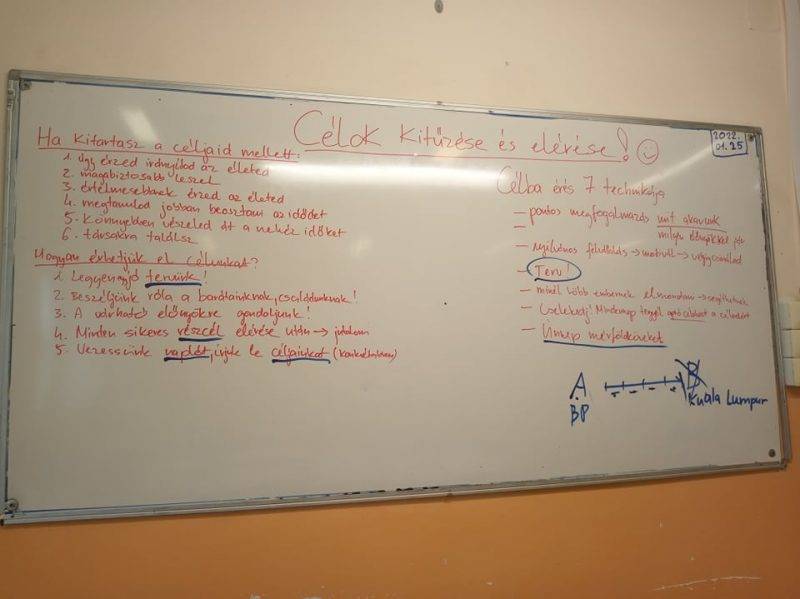 Célok kitűzése és elérése!
2022.
01.25
Ha kitartasz a céljaid mellett:
1. Úgy érzed irányítod az életed
2. magabiztosabb leszel
3. értelmesebbnek érzed az életed
4. megtanulod jobban beosztani az időдet
5. Könnyebben vészeled át a nehéz időket
6. társakra találsz
Hogyan érhetjük el célunkat?
1. Legyen jó tervünk!
2. Beszéljünk róla a barátainknak, családunknak!
3. A várható előnyökre gondoljunk!
4. Minden sikeres részcél elérése után → jutalom
5. Vezessünk naplót, írjuk le céljainkat
Célba érés 7 technikája
- pontos megfogalmazás mit akarunk
- milyen előnyökkel jár
- nyilvános felvállalás → motivál →
- Terv!
- minél több embernek elmondani → segíthetnek
- Cselekedj! Mindennap tegyél apró lépést a célodért
- Ünnepi mérföldköveket
A B
BP Kuala Lumpur